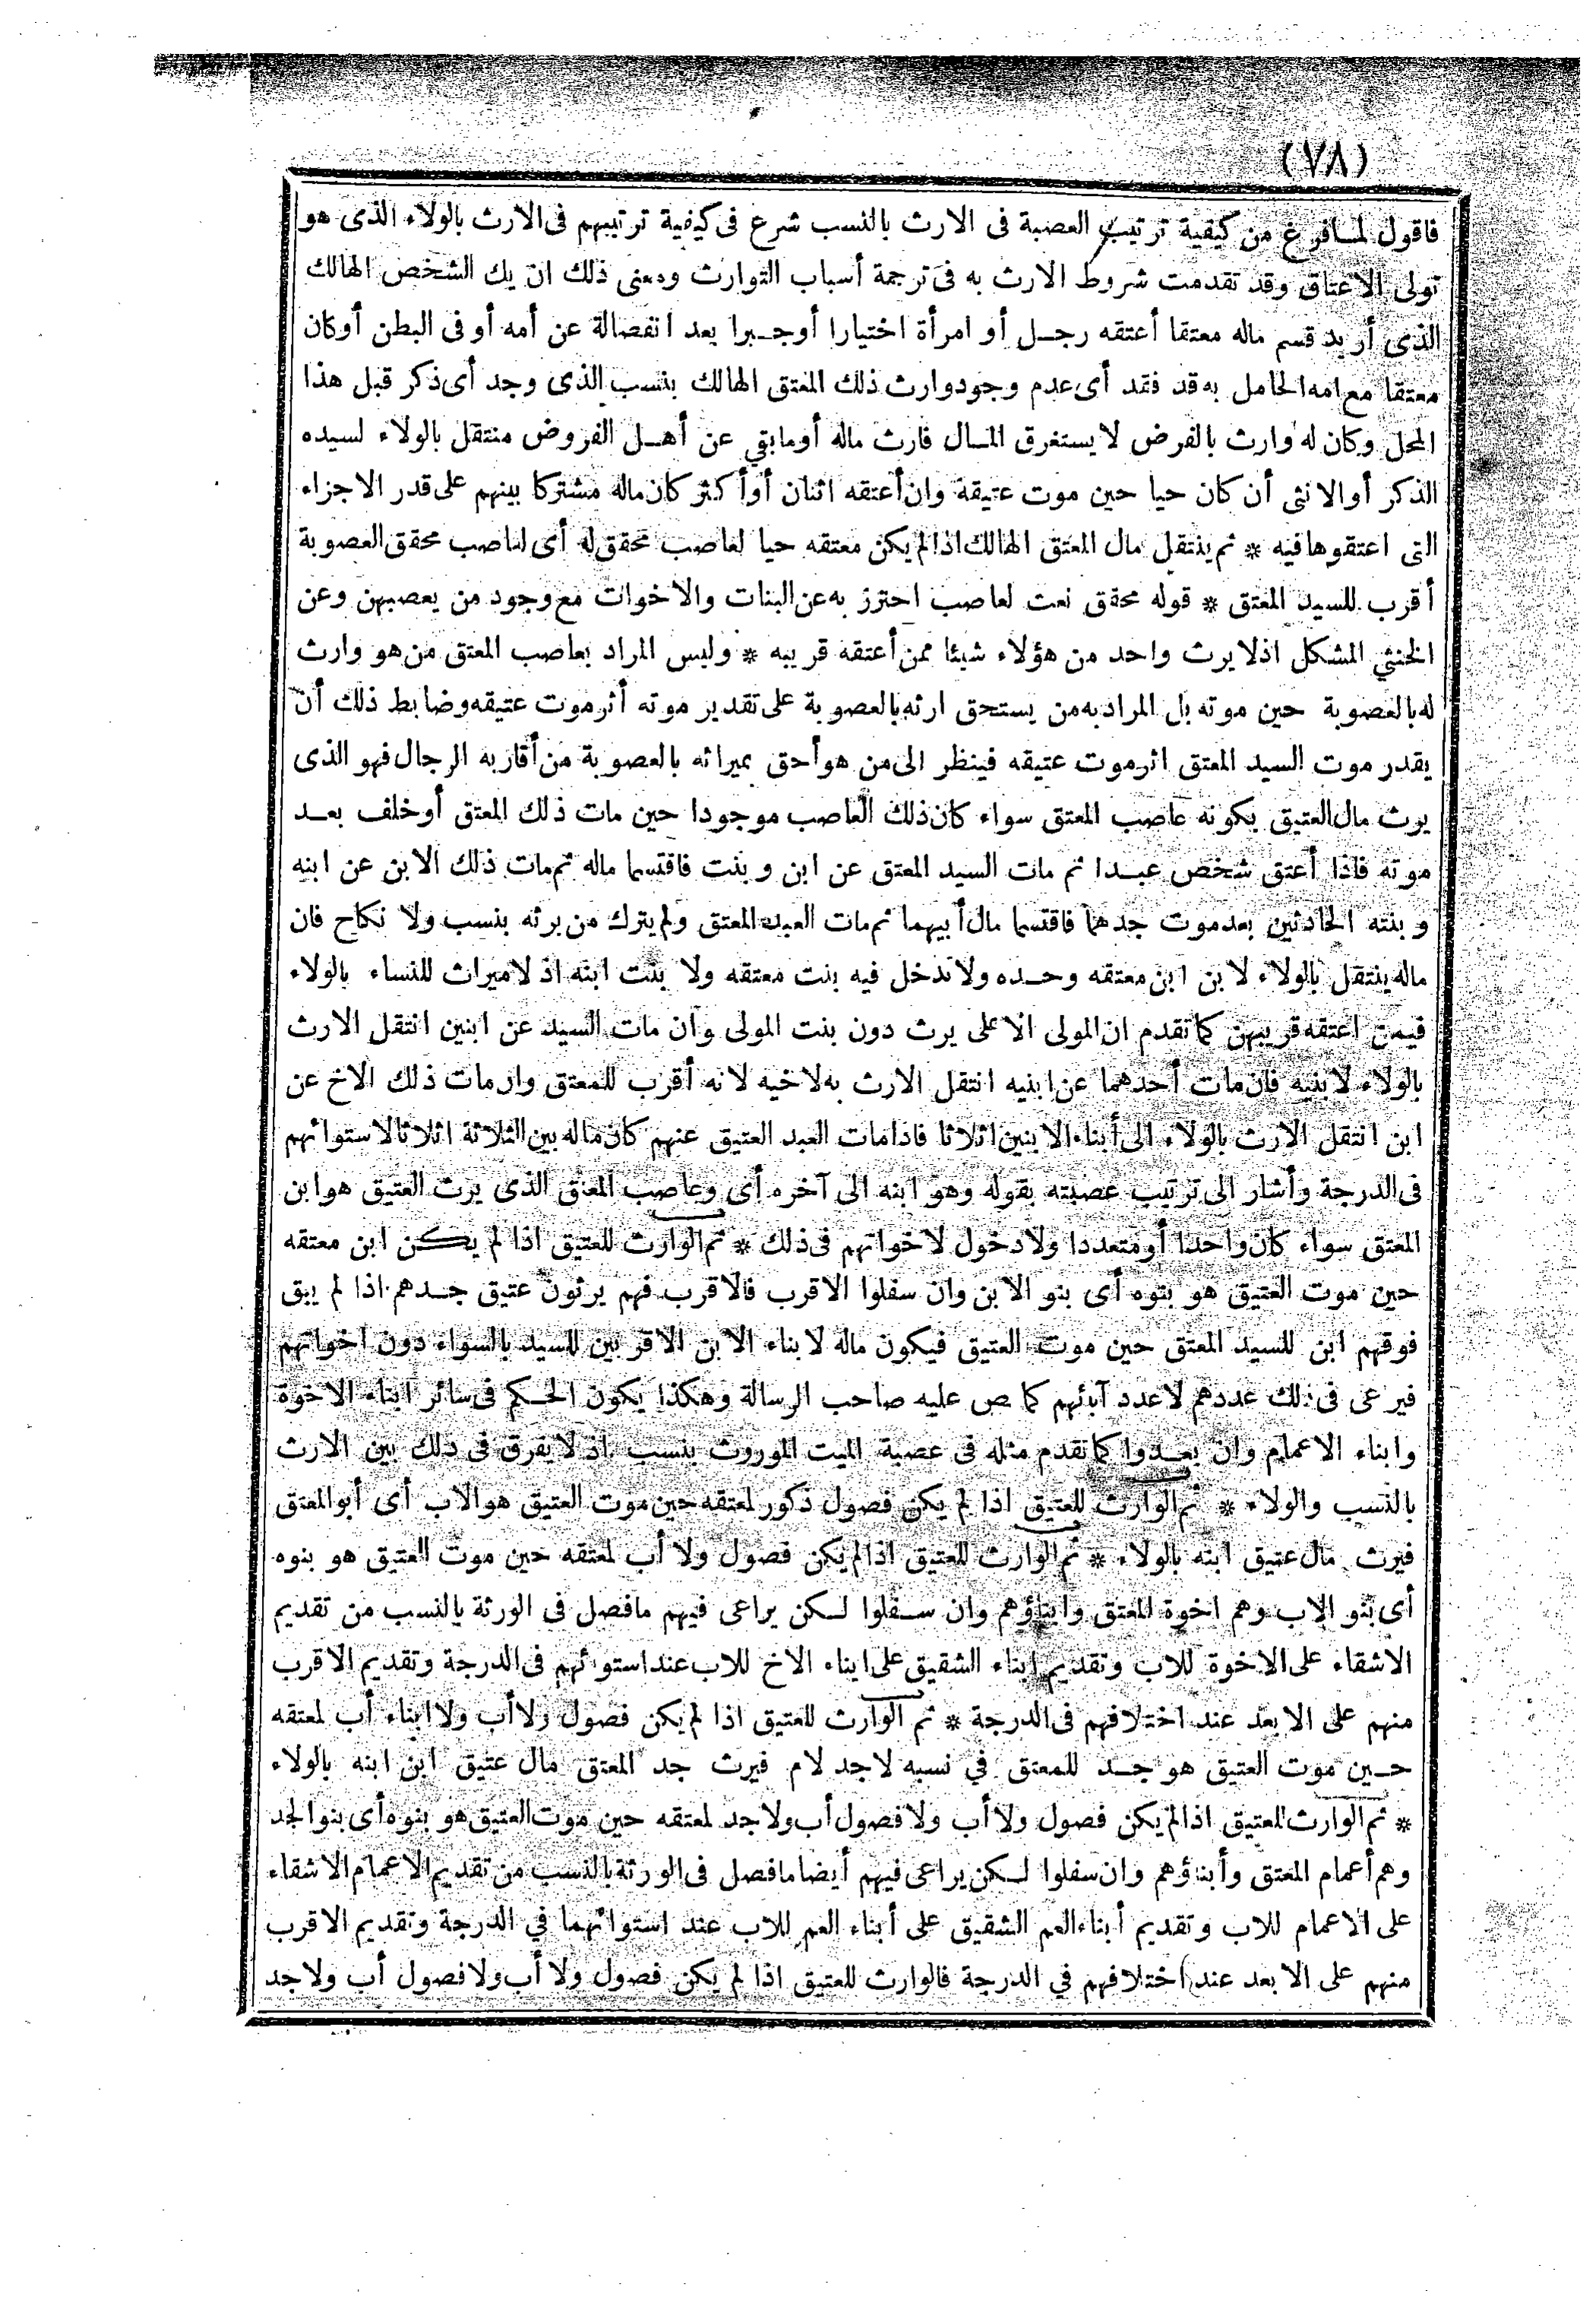 (٧٨)
فاقول لما فرغ من كيفية ترتيب العصبة فى الارث بالنسب شرع فى كيفية ترتيبهم فى الارث بالولاء الذى هو
تولى الاعتاق وقد تقدمت شروط الارث به فى ترجمة أسباب التوارث ومعنى ذلك ان يك الشخص الهالك
الذى أريد قسم ماله معتقا أعتقه رجل أو امرأة اختيارا أو جبرا بعد انفصاله عن أمه أو فى البطن أو كان
معتقا مع امه الحامل به قد فقد أى عدم وجود وارث ذلك المعتق الهالك بنسب الذى وجد أى ذكر قبل هذا
المحل وكان له وارث بالفرض لا يستغرق المال فارث ماله أو ما بقي عن أهل الفروض منتقل بالولاء لسيده
الذكر أو الانثى أن كان حيا حين موت عتيقة وان أعتقه اثنان أو أكثر كان ماله مشتركا بينهم على قدر الاجزاء
التى اعتقوها فيه * ثم ينتقل مال المعتق الهالك اذا لم يكن معتقه حيا لعاصب محقق له أى لعاصب محقق العصوبة
أقرب للسيد المعتق * قوله محقق نعت لعاصب احترز به عن البنات والاخوات مع وجود من يعصبهن وعن
الخنثى المشكل اذ لا يرث واحد من هؤلاء شيئا ممن أعتقه قريبه * وليس المراد بعاصب المعتق من هو وارث
له بالعصوبة حين موته بل المراد به من يستحق ارثه بالعصوبة على تقدير موته أثر موت عتيقه وضابط ذلك أن
يقدر موت السيد المعتق اثر موت عتيقه فينظر الى من هو أحق بميراثه بالعصوبة من أقاربه الرجال فهو الذى
يرث مال العتيق بكونه عاصب المعتق سواء كان ذلك العاصب موجودا حين مات ذلك المعتق أو خلف بعد
موته فاذا أعتق شخص عبدا ثم مات السيد المعتق عن ابن و بنت فاقتسما ماله ثم مات ذلك الابن عن ابنه
و بنته الحادثين بعد موت جدهما فاقتسما مال أبيهما ثم مات العبد المعتق ولم يترك من يرثه بنسب ولا نكاح فان
ماله ينتقل بالولاء لابن ابن معتقه وحده ولا تدخل فيه بنت معتقه ولا بنت ابنه اذ لا ميراث للنساء بالولاء
فيمن اعتقه قريبهن كما تقدم ان المولى الاعلى يرث دون بنت المولى وان مات السيد عن ابنين انتقل الارث
بالولاء لابنيه فان مات أحدهما عن ابنيه انتقل الارث به لاخيه لانه أقرب للمعتق وان مات ذلك الاخ عن
ابن انتقل الارث بالولاء الى أبناء الابنين اثلاثا فاذا مات العبد العتيق عنهم كان ماله بين الثلاثة اثلاثا لاستوائهم
فى الدرجة وأشار الى ترتيب عصبته بقوله وهو ابنه الى آخره أى وعاصب المعتق الذى يرث العتيق هو ابن
المعتق سواء كان واحدا أو متعددا ولا دخول لاخواتهم فى ذلك * ثم الوارث للعتيق اذا لم يكن ابن معتقه
حين موت العتيق هو بنوه أى بنو الابن وان سفلوا الاقرب فالاقرب فهم يرثون عتيق جدهم اذا لم يبق
فوقهم ابن للسيد المعتق حين موت العتيق فيكون ماله لابناء الابن الاقربين للسيد بالسواء دون اخواتهم
فيرعى فى ذلك عددهم لا عدد آبائهم كما ص عليه صاحب الرسالة وهكذا يكون الحكم فى سائر ابناء الاخوة
وابناء الاعمام وان بعدوا كما تقدم مثله فى عصبة الميت الموروث بنسب اذ لا يفرق فى ذلك بين الارث
بالنسب والولاء * ثم الوارث للعتيق اذا لم يكن فصول ذكور لمعتقه حين موت العتيق هو الاب أى أبو المعتق
فيرث مال عتيق ابنه بالولاء * ثم الوارث للعتيق اذا لم يكن فصول ولا أب لمعتقه حين موت العتيق هو بنوه
أى بنو الاب وهم اخوة المعتق وابناؤهم وان سفلوا لكن يراعى فيهم ما فصل فى الورثة بالنسب من تقديم
الاشقاء على الاخوة للاب وتقديم ابناء الشقيق على ابناء الاخ للاب عند استوائهم فى الدرجة وتقديم الاقرب
منهم على الابعد عند اختلافهم فى الدرجة * ثم الوارث للعتيق اذا لم يكن فصول ولا أب ولا ابناء أب لمعتقه
حين موت العتيق هو جد للمعتق في نسبه لا جد لام فيرث جد المعتق مال عتيق ابن ابنه بالولاء
* ثم الوارث للعتيق اذا لم يكن فصول ولا أب ولا فصول أب ولا جد لمعتقه حين موت العتيق هو بنوه أى بنو الجد
وهم أعمام المعتق وأبناؤهم وان سفلوا لكن يراعى فيهم أيضا ما فصل فى الورثة بالنسب من تقديم الاعمام الاشقاء
على الاعمام للاب وتقديم أبناء العم الشقيق على أبناء العم للاب عند استوائهما في الدرجة وتقديم الاقرب
منهم على الابعد عند اختلافهم في الدرجة فالوارث للعتيق اذا لم يكن فصول ولا أب ولا فصول أب ولا جد